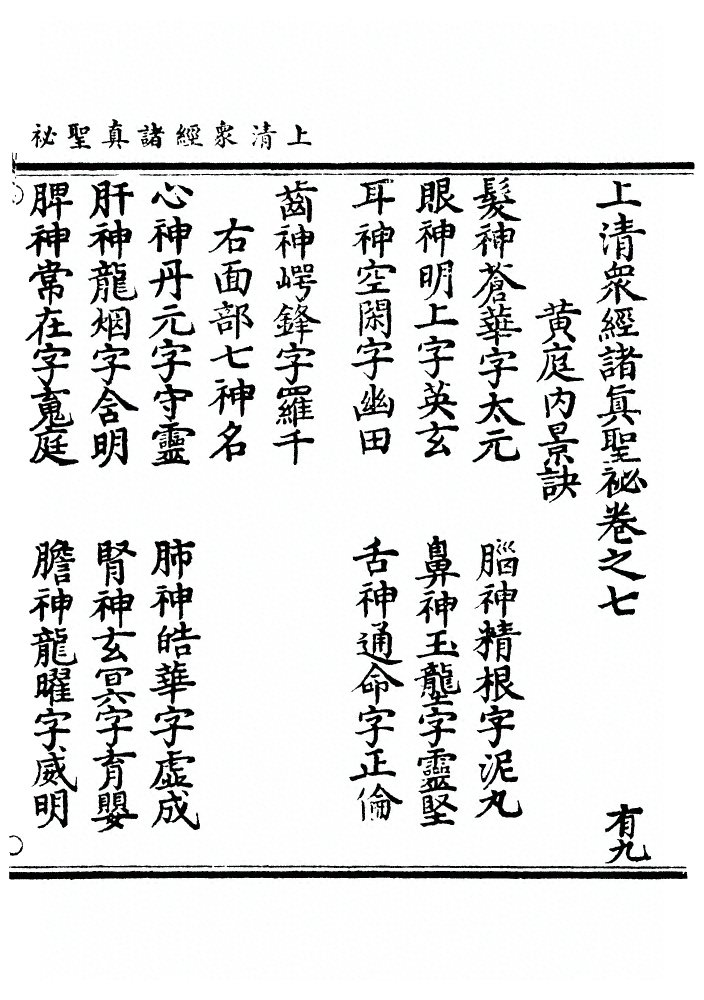 上清衆經諸真聖祕
上清衆經諸真聖祕卷之七 有九
黃庭內景訣
髮神蒼華字太元 腦神精根字泥丸
眼神明上字英玄 鼻神玉壟字靈堅
耳神空閑字幽田 舌神通命字正倫
齒神崿鋒字羅千
右面部七神名
心神丹元字守靈 肺神皓華字虛成
肝神龍烟字含明 腎神玄冥字育嬰
脾神常在字魂庭 膽神龍曜字威明